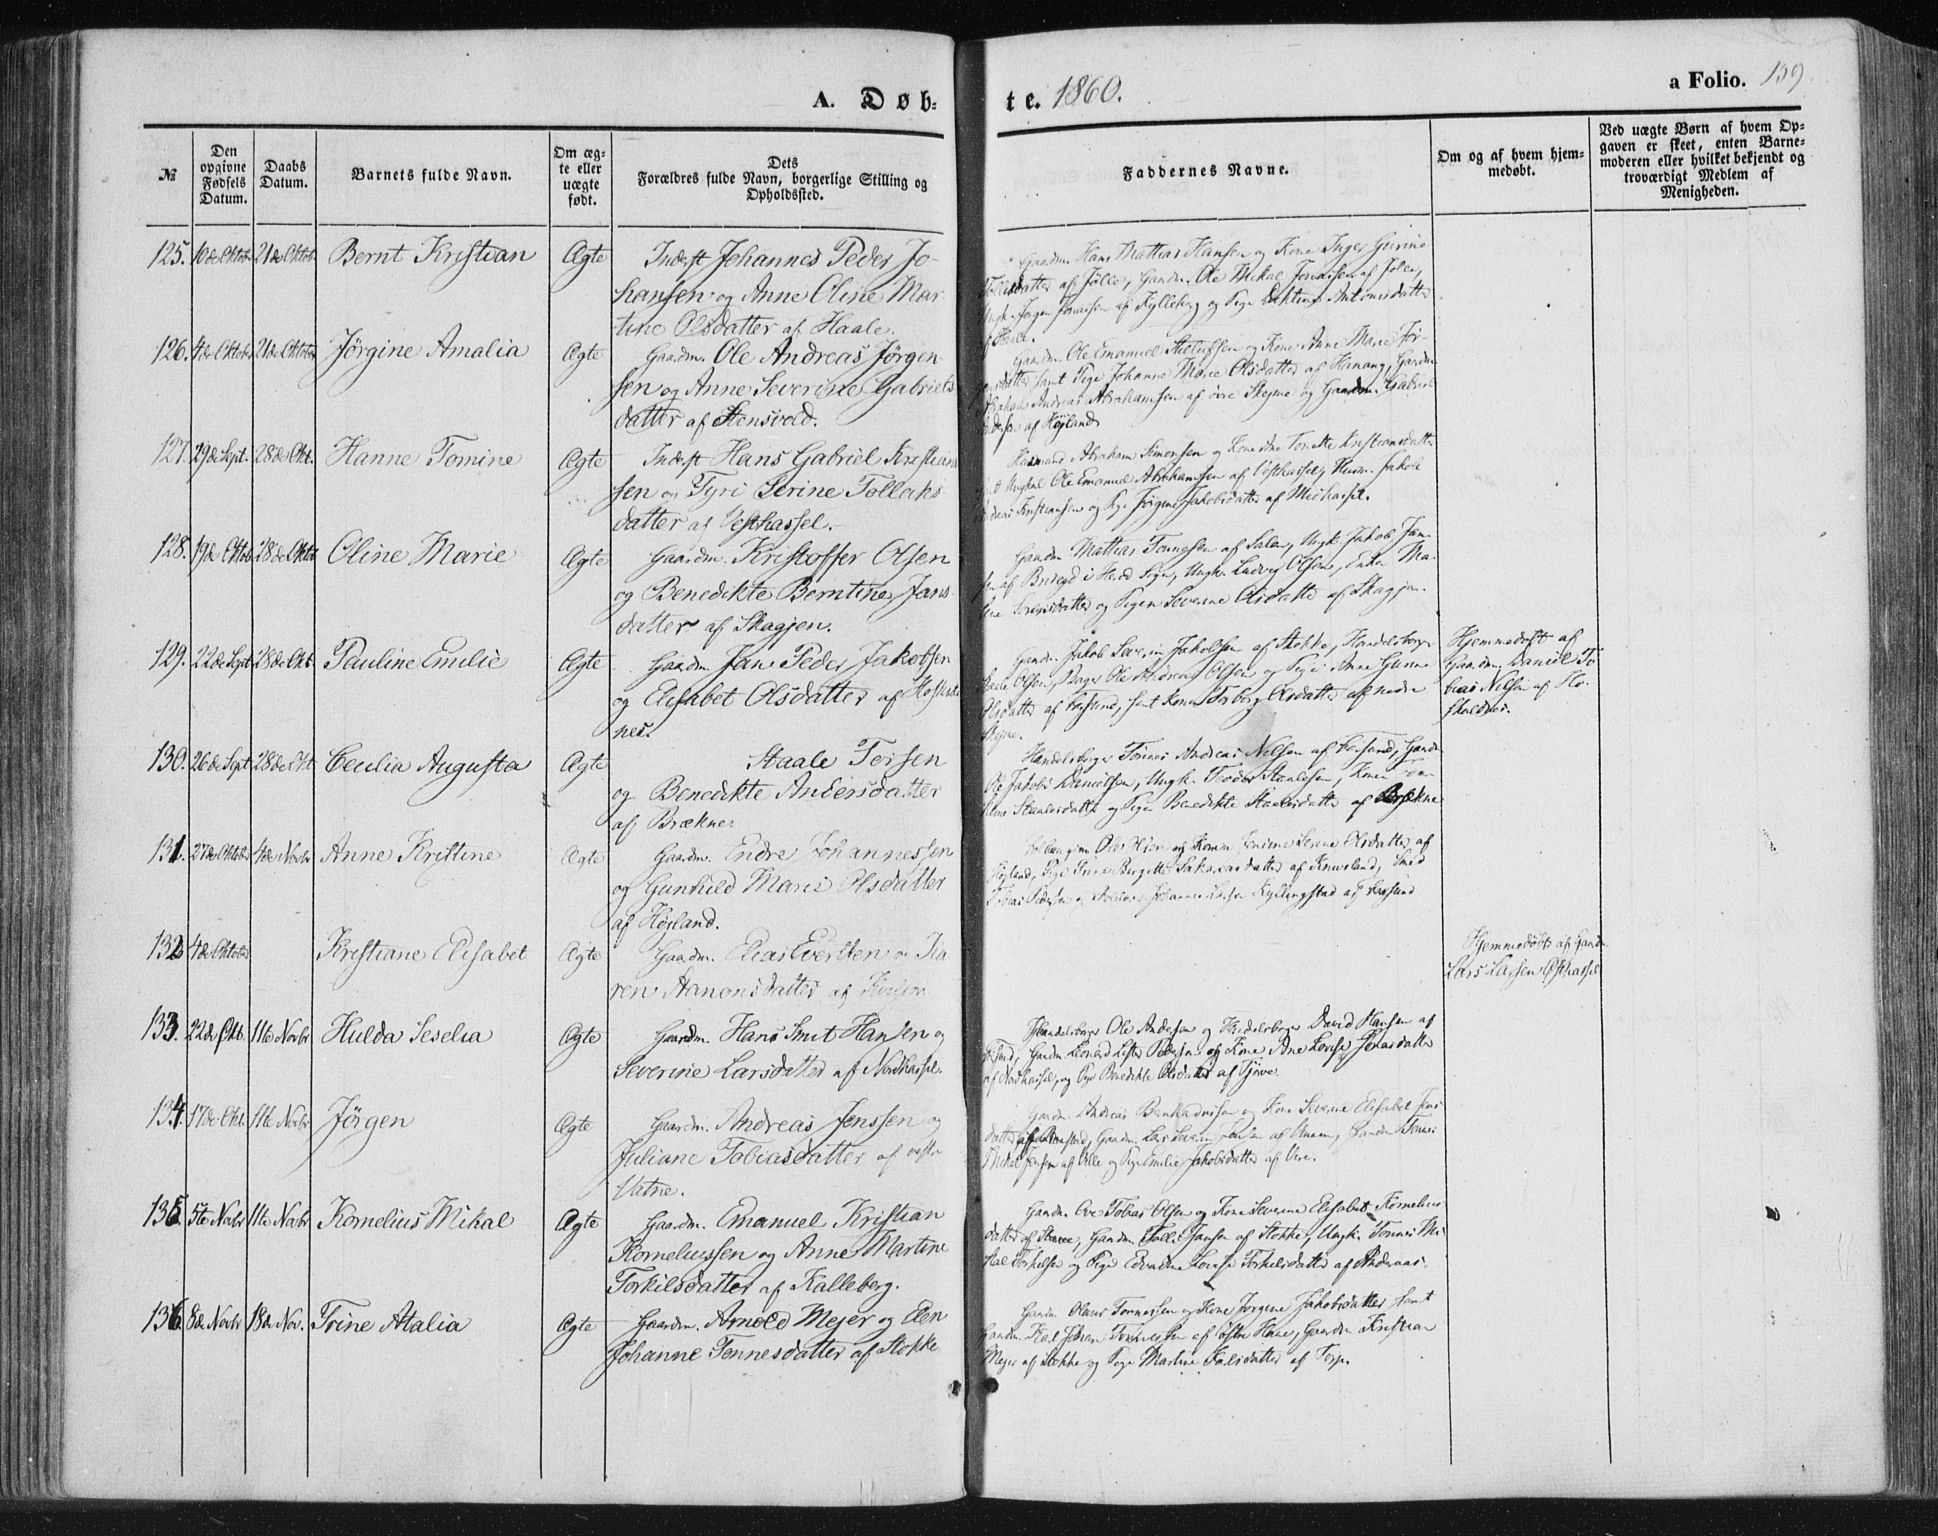 A. Døb-
te. 1860.
a Folio. 159.
№
Den opgivne Fødsels Datum.
Daabs Datum.
Barnets fulde Navn.
Om ægte eller uægte født.
Dets
Forældres fulde Navn, borgerlige Stilling og
Opholdssted.
Faddernes Navne.
Om og af hvem hjem-
medøbt.
Ved uægte Børn af hvem Op-
gaven er skeet, enten Barne-
moderen eller hvilket bekjendt og
troværdigt Medlem af
Menigheden.
125. 10de Oktob. 21de Oktob. Bernt Kristian Ægte Inderst Johannes Peder Jo-
hansen og Anne Oline Mar-
tine Olsdatter af Haale.
Gaardm. Hans Mathias Hansen og Kone Inger Gurine
af Jølle, Gaardm. Ole Mikal Jonassen af Jølle,
Ungk. Jørgen Jonassen af Kylleberg og Pige Antonisdatter
126. 4de Oktob. 21de Oktober Jörgine Amalia Ægte Gaardm. Ole Andreas Jörgen-
sen og Anne Severine Gabriels-
datter af Stensvold.
Gaardm. Ole Emanuel og Kone Anne Marie Jör-
gensdatter samt Pige Johanne Marie Olsdatter af Hanang, Gaardm
Andreas Abrahamsen af övre Skejne og Gaardm. Gabriel
af Höjland
127. 29de Sept. 28de Okt. Hanne Tomine Ægte Inderst Hans Gabriel Kristian-
sen og Tyri Serine Tollaks-
datter af Vesthassel.
Husmand Abraham Simonsen og Kone Tonette Kristiansdatter
Ungkal Ole Emanuel Abrahamsen af Vesthassel, Husm. Jakob
Kristiansen og Pige Jörgine Jakobsdatter af Midhassel.
128. 19de Oktob. 28de Oktob Oline Marie Ægte Gaardm. Kristoffer Olsen
og Benedikte Berntine Jans-
datter af Skagjen.
Gaardm Mathias Tönnesen af Salen, Ungk. Jakob Jan-
sen af i Herred Sogn, Ungk. Ludvig Olsen, Enke Ma-
og Pigen Severine Olsdatter af Skagjen.
129. 22de Sept. 28de Okt. Pauline Emilie Ægte Gaardm Jan Peder Jakobsen
og Elisabet Olsdatter af
Gaardm. Jakob Severin Jakobsen af Stokke, Handelsborger
Staale Olsen, Borger Ole Andreas Olsen og Pige Anne Gunne
Olsdatter af Farsund, samt Kone Torborg Olsdatter af nedre
Skejne.
Hjemmedöbt af
Gaardm. Daniel To-
bias Nilsen af Flo-
130. 26de Sept 28de Okt Cecilia Augusta Ægte Staale Torsen
og Benedikte Andersdatter
af Brækne
Handelsborger Tönnes Andreas Nilsen af Farsund, Gaardm
Ole Jakob Danielsen, Ungk. Teodor Staalesen, Kone
Staalesdatter og Pige Benedikte Staalesdatter af Brækne
131. 27de Oktob 4de Novbr Anne Kristine Ægte Gaardm. Endre Johannessen
og Gunhild Marie Olsdatter
af Höjland.
Ole Olsen og Kone Serine Olsdatter af
Höjland, Pige Trine Birgitte Sakariasdatter af Knivsland, Smed
Tobias Pedersen og Johannes Larsen Kyllingstad af Farsund
132 4de Oktober Kristiane Elisabet Ægte Gaardm. Elias Evertsen og Ka-
ren Aanonsdatter af
Hjemmedöbt af Gaardm
Lars Larsen Østhassel
133. 22de Okt. 11te Novbr Hulda Seselia Ægte Gaardm. Hans Smit Hansen og
Severine Larsdatter af Nordhassel.
Handelsborger Ole Andersen og Handelsborger David Hansen af
Farsund, Gaardm Leonard Lester Pedersen og Kone Ane Lovise Jonasdatter
af Nordhassel, og Pige Benedikte Olsdatter af Tjörve.
134. 17de Okt. 11te Novbr Jörgen Ægte Gaardm. Andreas Jenssen og
Juliane Tobiasdatter af vestre
Vatne.
Gaardm. Andreas og Kone Severine Elisabet Jens-
datter af, Gaardm. Lars Severin, Gaardm Tönnes
Mikal Jensen af og Pige Emilie Jakobsdatter af Ore.
135. 5te Novbr 11te Novbr Kornelius Mikal Ægte Gaardm. Emanuel Kristian
Korneliussen og Anne Martine
Torkilsdatter af Kalleberg.
Gaardm. Ove Tobias Olsen og Kone Severine Elisabet Kornelius-
datter af, Gaardm. Tolle Jansen af Stokke, Ungk. Tönnes Mi-
kal Torkilsen og Pige Edvardine Lovise Torkilsdatter af Underaas.
136. 8de Novbr 18de Nov. Trine Atalia Ægte Gaardm. Arnold Mejer og Elen
Johanne Tönnesdatter af Stokke
Gaardm Olaus Tönnessen og Kone Jörgine Jakobsdatter samt
Gaardm. Karl Johan Tönnessen af östre Hane, Gaardm Kristian
Mejer af Stokke og Pige Martine af Torp.